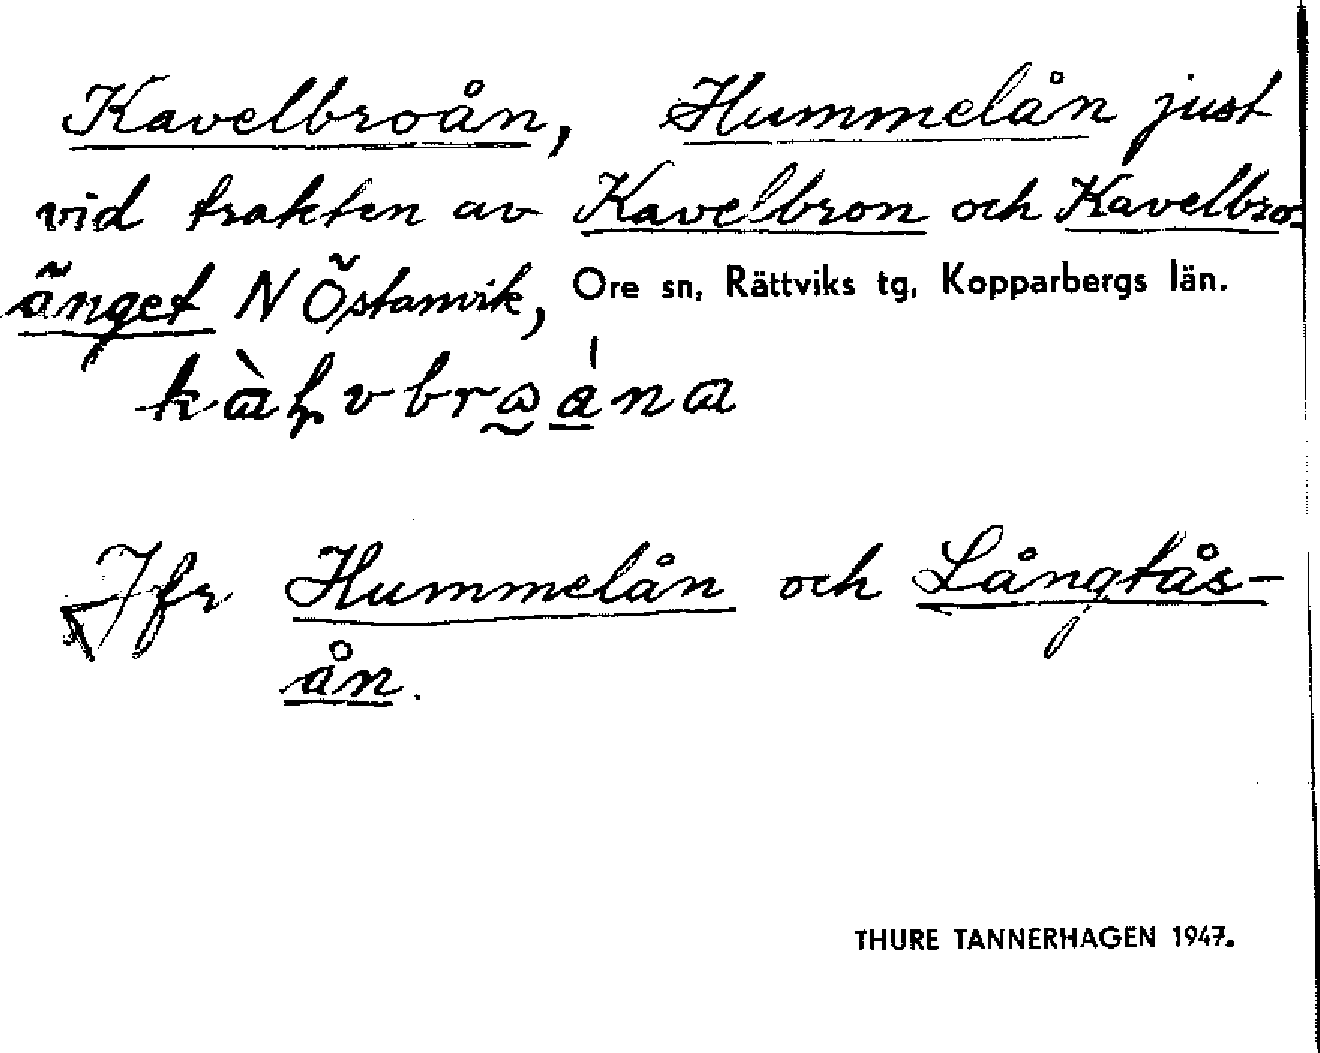 Kavelbroån, Hummelån just
vid trakten av Kavelbron och Kavelbro-
änget N Östanvik, Ore sn, Rättviks tg, Kopparbergs län.
Jfr Hummelån och Långtås-
ån.
THURE TANNERHAGEN 1947.